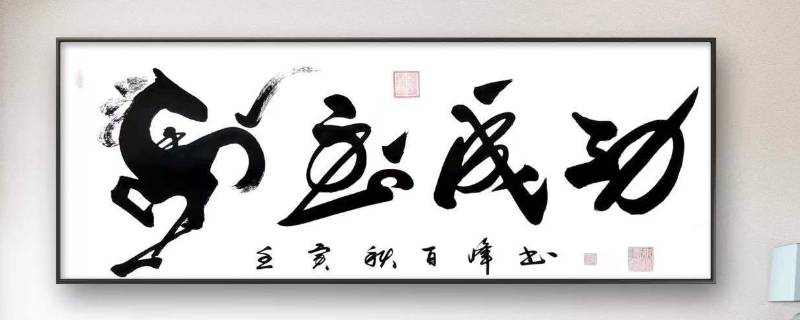 马到成功
壬寅秋百峰书